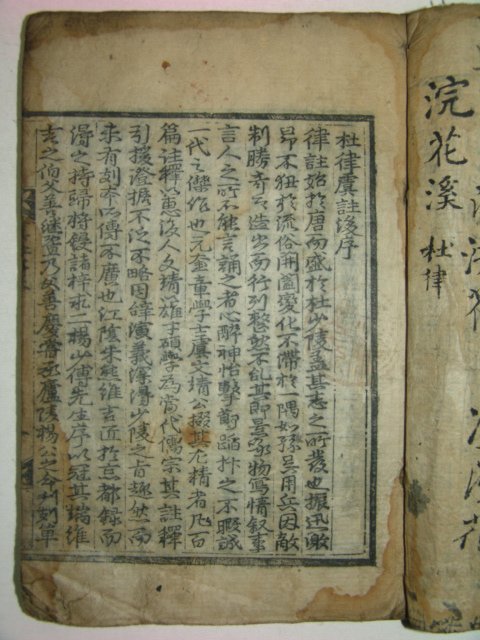 浣花溪 杜律
杜律虞註後序
律註始於唐而盛於杜少陵盖其志之所發也振迅激
昂不狃於流俗開闔變化不滯於一隅如孫吳用兵因敵
制勝奇正造出而行列整然不乱其即景咏物寫情叙事
言人之所不能言誦之者心醉神怡擊節蹈抃之不暇誠
一代之傑作也元奎章學士虞文靖公掇其尤精者凡百
篇註釋以惠後人文靖雄才碩學為當代儒宗其註釋
引援證據不泛不略因辭演義深得少陵之旨趣然而
未有刻本以傳不廣也江陰朱熊維吉近於京都録而
得之持歸將鋟諸梓求一楊少傅先生序以冠其端維
吉之伯父善継暨乃父善慶丞廬陵楊公之令刻草